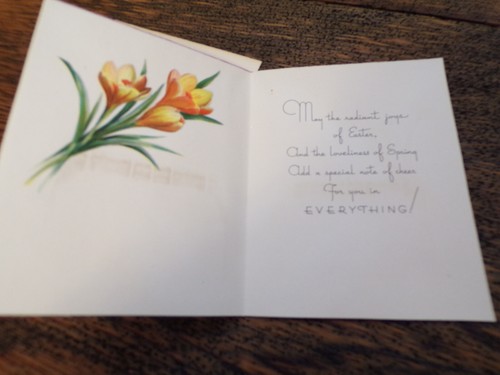 May the radiant joys
of Easter,
And the loveliness of Spring
Add a special note of cheer
For you in
EVERYTHING!